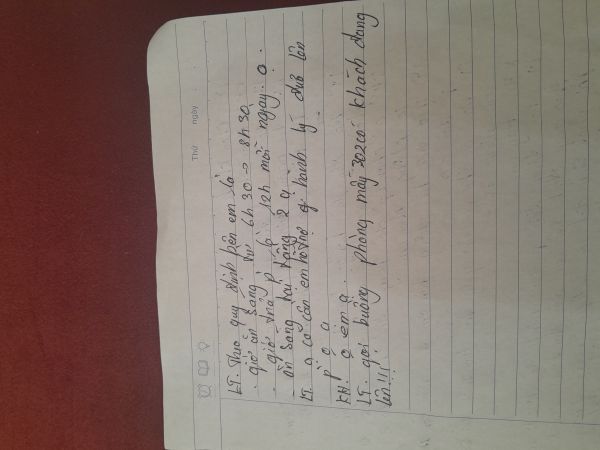 Thứ ngày
LT. Theo quy định bên em là
. giờ ăn sáng từ 6h30 -> 8h30
. giờ trả p là 12h mỗi ngày. ạ.
ăn sáng tại tầng 2 ạ
LT. a có cần em hỗ trợ gì hành lý đưa lên
p o ạ
KH. o em ạ.
LT. gọi buồng phòng mấy 302 có khách đang
lên!!!